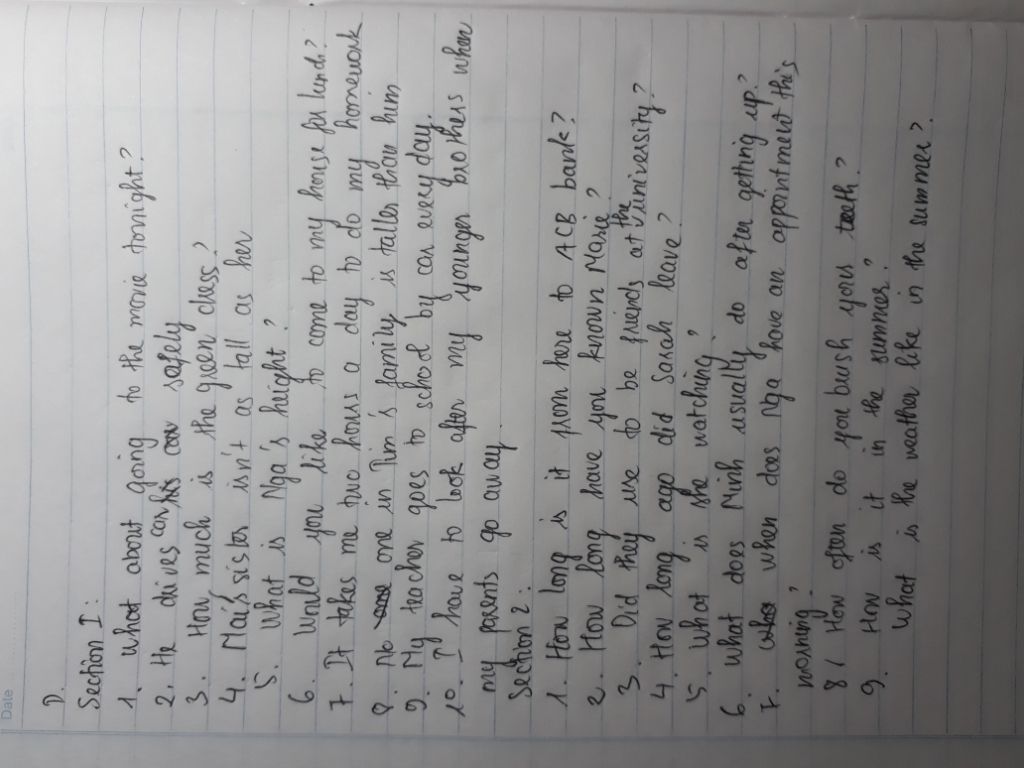 Date
D.
Section I:
1. What about going to the movie tonight?
2. He drives car his car safely
3. How much is the green dress?
4. Mai's sister isn't as tall as her
5. What is Nga's height?
6. Would you like to come to my house for lunch?
7. It takes me two hours a day to do my homework
8. No one in Tim's family is taller than him
9. My teacher goes to school by car every day.
10. I have to look after my younger brothers when
my parents go away.
Section 2:
1. How long is it from here to ACB bank?
2. How long have you known Marie?
3. Did they use to be friends at the University?
4. How long ago did Sarah leave?
5. What is she watching?
6. What does Minh usually do after getting up?
7. when does Nga have an appointment this
morning?
8/ How often do you brush your teeth?
9. How is it in the summer?
What is the weather like in the summer?